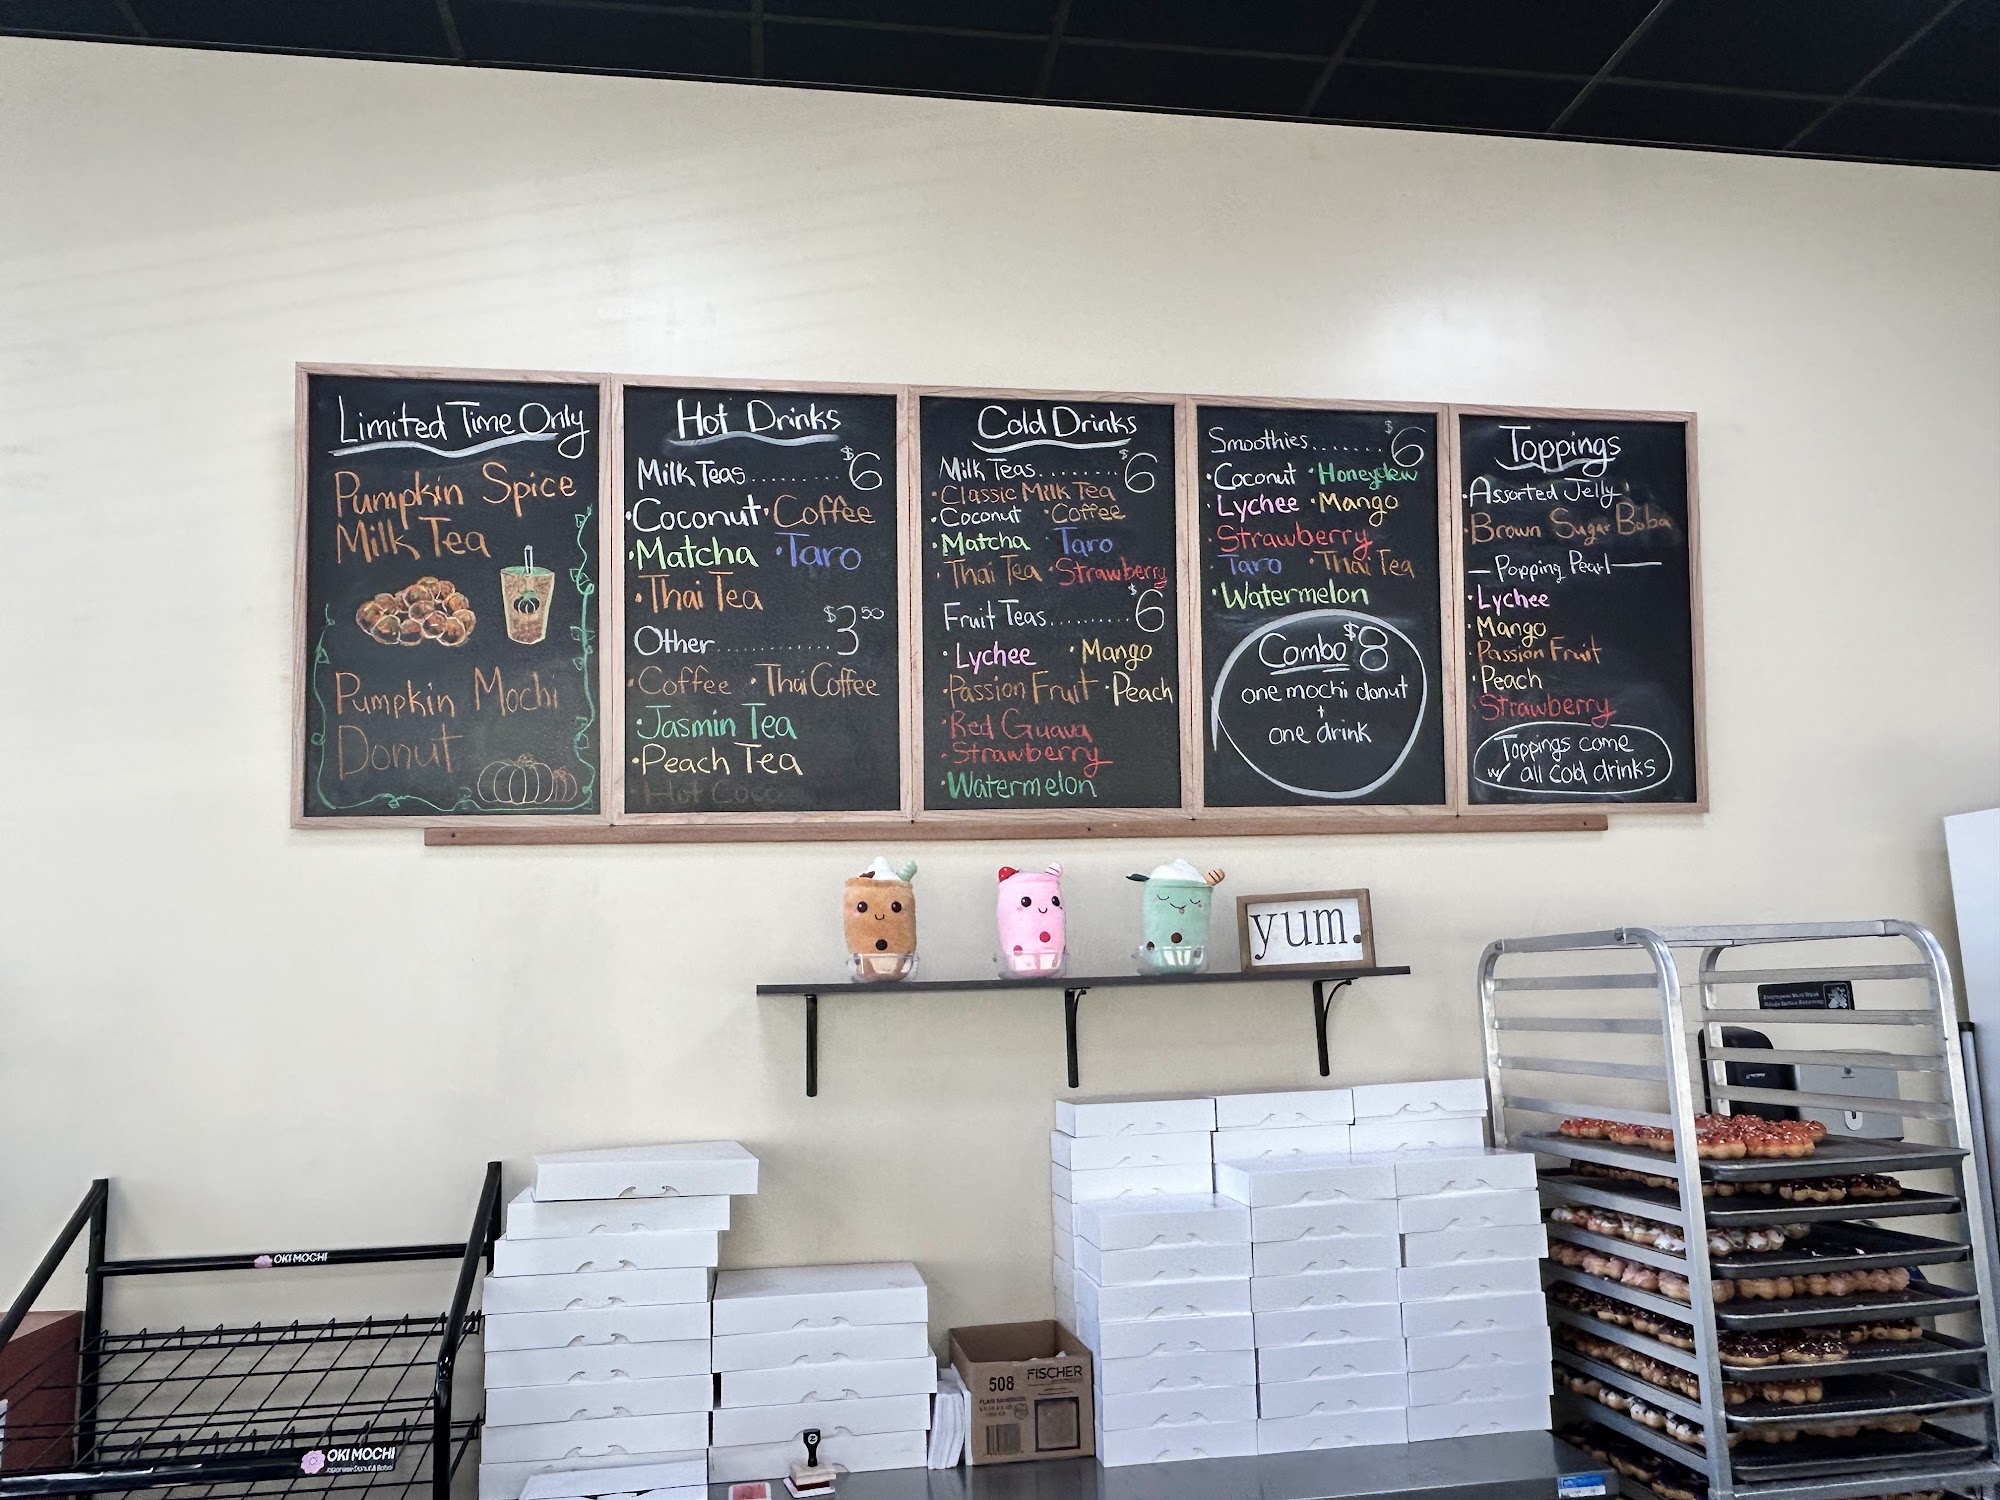 Limited Time Only
Pumpkin Spice
Milk Tea
Pumpkin Mochi
Donut
Hot Drinks
Milk Teas........ $6
·Coconut ·Coffee
·Matcha ·Taro
·Thai Tea
Other............. $3.50
·Coffee ·Thai Coffee
·Jasmin Tea
·Peach Tea
·Hot Coco
Cold Drinks
Milk Teas........ $6
·Classic Milk Tea
·Coconut ·Coffee
·Matcha ·Taro
·Thai Tea ·Strawberry
Fruit Teas.......... $6
·Lychee ·Mango
·Passion Fruit ·Peach
·Red Guava
·Strawberry
·Watermelon
Smoothies....... $6
·Coconut ·Honeydew
·Lychee ·Mango
·Strawberry
·Taro ·Thai Tea
·Watermelon
Combo $8
one mochi donut
+
one drink
Toppings
·Assorted Jelly
·Brown Sugar Boba
—Popping Pearl—
·Lychee
·Mango
·Passion Fruit
·Peach
·Strawberry
Toppings come
w/ all cold drinks
yum.
OKI MOCHI
OKI MOCHI
Japanese Donut & Boba
508 FISCHER